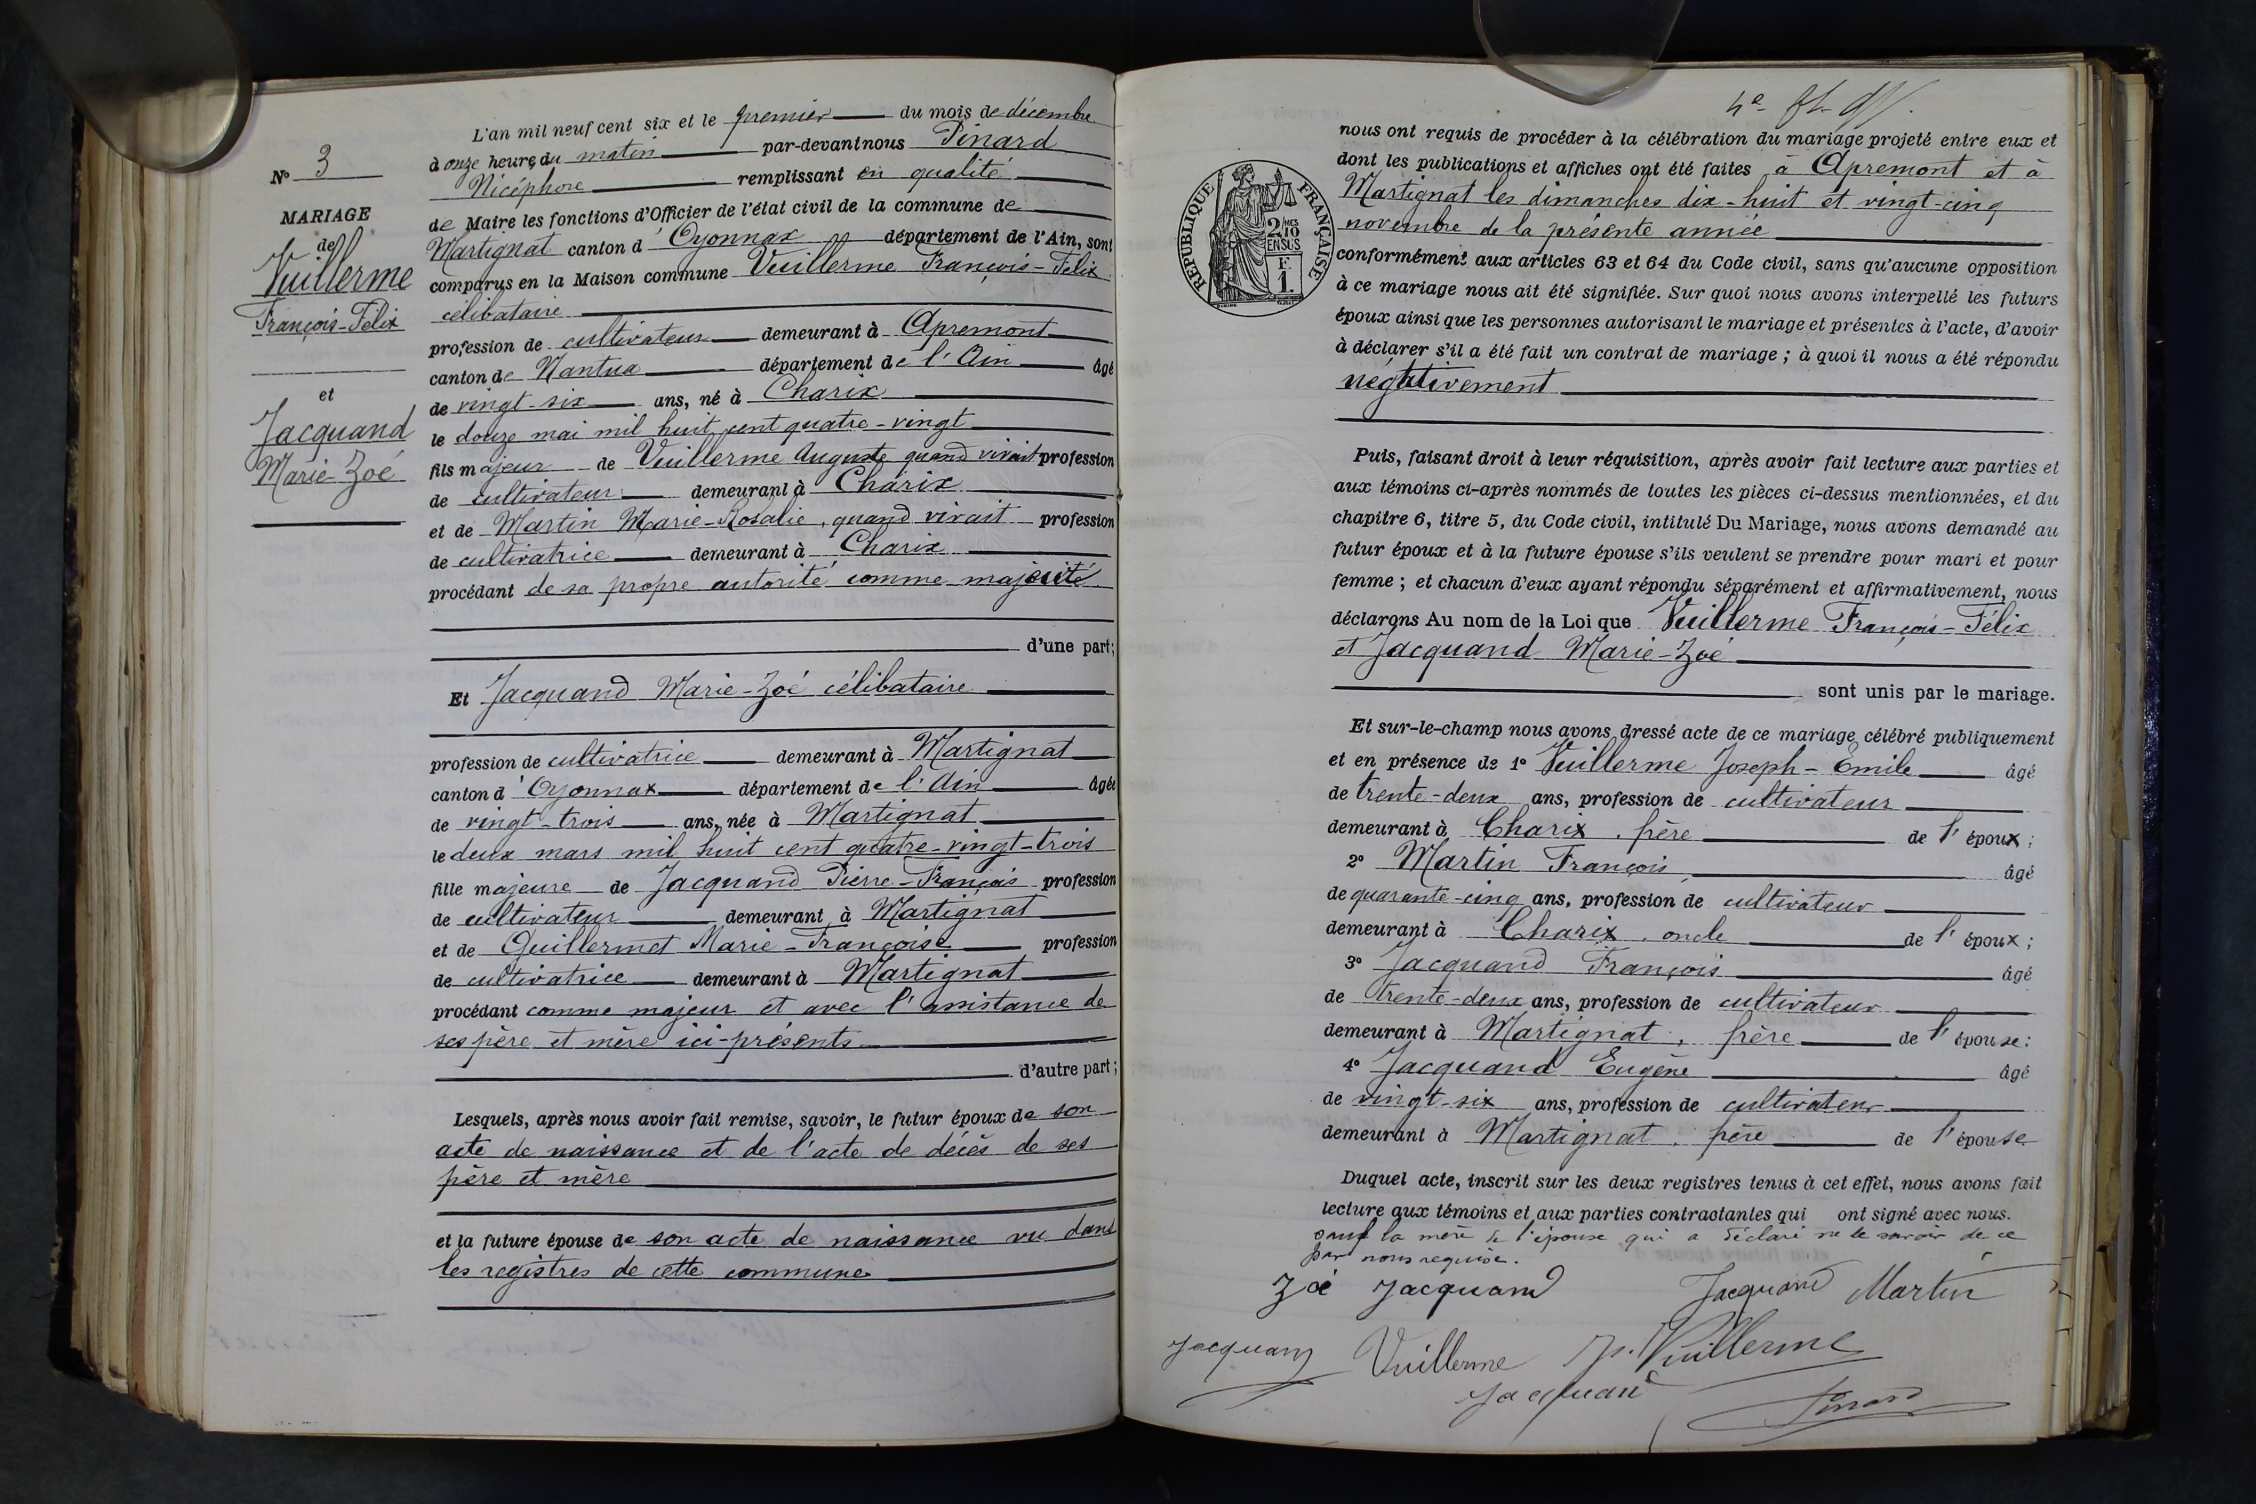 N° 3
MARIAGE
de
Vuillerme
François-Félix
et
Jacquand
Marie-Zoé
L'an mil neuf cent six et le premier du mois de décembre
à onze heures du matin par-devant nous Pinard
Nicéphore remplissant en qualité
de Maire les fonctions d'Officier de l'état civil de la commune de
Martignat canton d'Oyonnax département de l'Ain, sont
comparus en la Maison commune Vuillerme François-Félix
célibataire
profession de cultivateur demeurant à Apremont
canton de Nantua département de l'Ain âgé
de vingt-six ans, né à Charix
le douze mai mil huit cent quatre-vingt
fils majeur de Vuillerme Auguste quand vivait profession
de cultivateur demeurant à Charix
et de Martin Marie-Rosalie, quand vivait profession
de cultivatrice demeurant à Charix
procédant de sa propre autorité comme majeur
d'une part;
Et Jacquand Marie-Zoé célibataire
profession de cultivatrice demeurant à Martignat
canton d'Oyonnax département de l'Ain âgée
de vingt-trois ans, née à Martignat
le deux mars mil huit cent quatre-vingt-trois
fille majeure de Jacquand Pierre-François profession
de cultivateur demeurant à Martignat
et de Guillermet Marie-Françoise profession
de cultivatrice demeurant à Martignat
procédant comme majeur et avec l'assistance de
ses père et mère ici-présents
d'autre part;
Lesquels, après nous avoir fait remise, savoir, le futur époux de son
acte de naissance et de l'acte de décès de ses
père et mère
et la future épouse de son acte de naissance vu dans
les registres de cette commune
RÉPUBLIQUE FRANÇAISE
2/10 EN SUS
F.
1.
nous ont requis de procéder à la célébration du mariage projeté entre eux et
dont les publications et affiches ont été faites à Apremont et à
Martignat les dimanches dix-huit et vingt-cinq
novembre de la présente année
conformément aux articles 63 et 64 du Code civil, sans qu'aucune opposition
à ce mariage nous ait été signifiée. Sur quoi nous avons interpellé les futurs
époux ainsi que les personnes autorisant le mariage et présentes à l'acte, d'avoir
à déclarer s'il a été fait un contrat de mariage ; à quoi il nous a été répondu
négativement
Puis, faisant droit à leur réquisition, après avoir fait lecture aux parties et
aux témoins ci-après nommés de toutes les pièces ci-dessus mentionnées, et du
chapitre 6, titre 5, du Code civil, intitulé Du Mariage, nous avons demandé au
futur époux et à la future épouse s'ils veulent se prendre pour mari et pour
femme ; et chacun d'eux ayant répondu séparément et affirmativement, nous
déclarons Au nom de la Loi que Vuillerme François-Félix
et Jacquand Marie-Zoé
sont unis par le mariage.
Et sur-le-champ nous avons dressé acte de ce mariage célébré publiquement
et en présence de 1° Vuillerme Joseph-Emile âgé
de trente-deux ans, profession de cultivateur
demeurant à Charix, frère de l'époux ;
2° Martin François âgé
de quarante-cinq ans, profession de cultivateur
demeurant à Charix, oncle de l'époux ;
3° Jacquand François âgé
de trente-deux ans, profession de cultivateur
demeurant à Martignat, frère de l'épouse :
4° Jacquand Eugène âgé
de vingt-six ans, profession de cultivateur
demeurant à Martignat, frère de l'épouse
Duquel acte, inscrit sur les deux registres tenus à cet effet, nous avons fait
lecture aux témoins et aux parties contractantes qui ont signé avec nous.
sauf la mère de l'épouse qui a déclaré ne le savoir de ce
par nous requise.
Zoé Jacquand Jacquand Martin
Jacquand Vuillerme Vuillerme
Jacquand Pinard